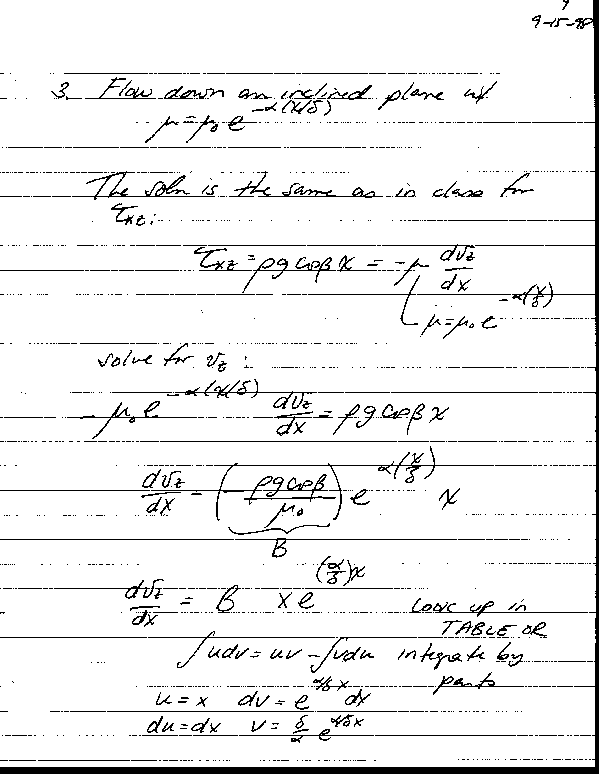 9-15-98
3. Flow down an inclined plane w/
μ = μ₀ e^{-α(x/δ)}
The soln is the same as in class for
τxz:
τxz = ρg cosβ x = -μ dvz/dx
μ = μ₀ e^{-α(x/δ)}
solve for vz :
- μ₀ e^{-α(x/δ)} dvz/dx = ρg cosβ x
dvz/dx = (-ρg cosβ/μ₀) e^{α(x/δ)} x
B
dvz/dx = B x e^{(α/δ)x}
LOOK up in
TABLE OR
∫udv = uv - ∫vdu integrate by
parts
u = x dv = e^{α/δ x} dx
du = dx v = δ/α e^{α/δ x}